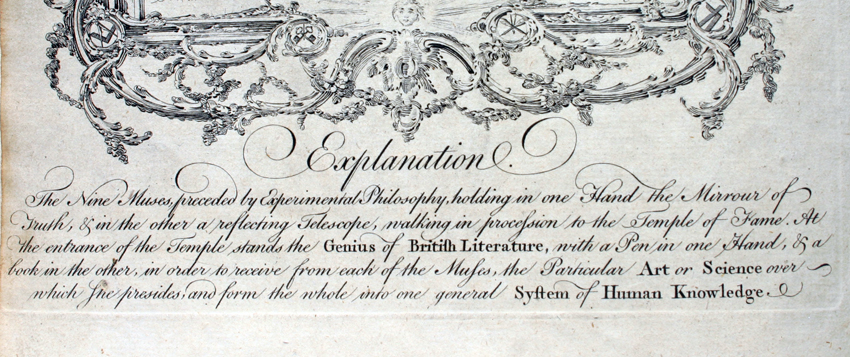 Explanation.
The Nine Muses, preceded by Experimental Philosophy, holding in one Hand the Mirrour of
Truth, & in the other a reflecting Telescope, walking in procession to the Temple of Fame. At
the entrance of the Temple stands the Genius of Britiſh Literature, with a Pen in one Hand, & a
book in the other, in order to receive from each of the Muſes, the Particular Art or Science over
which ſhe presides, and form the whole into one general Syſtem of Human Knowledge.